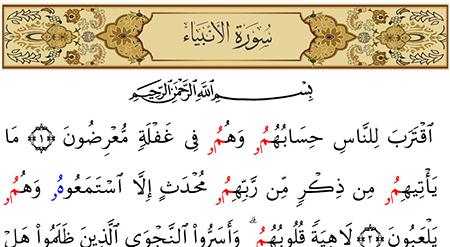 سُورَةُ الأَنبِيَاء
بِسْمِ اللَّهِ الرَّحْمَٰنِ الرَّحِيمِ
ٱقْتَرَبَ لِلنَّاسِ حِسَابُهُمُۥ وَهُمُۥ فِى غَفْلَةٍ مُّعْرِضُونَ ١ مَا
يَأْتِيهِمُۥ مِن ذِكْرٍ مِّن رَّبِّهِمُۥ مُحْدَثٍ إِلَّا ٱسْتَمَعُوهُۥ وَهُمُۥ
يَلْعَبُونَ ٢ لَاهِيَةً قُلُوبُهُمُۥ ۗ وَأَسَرُّوا۟ ٱلنَّجْوَى ٱلَّذِينَ ظَلَمُوا۟ هَلْ